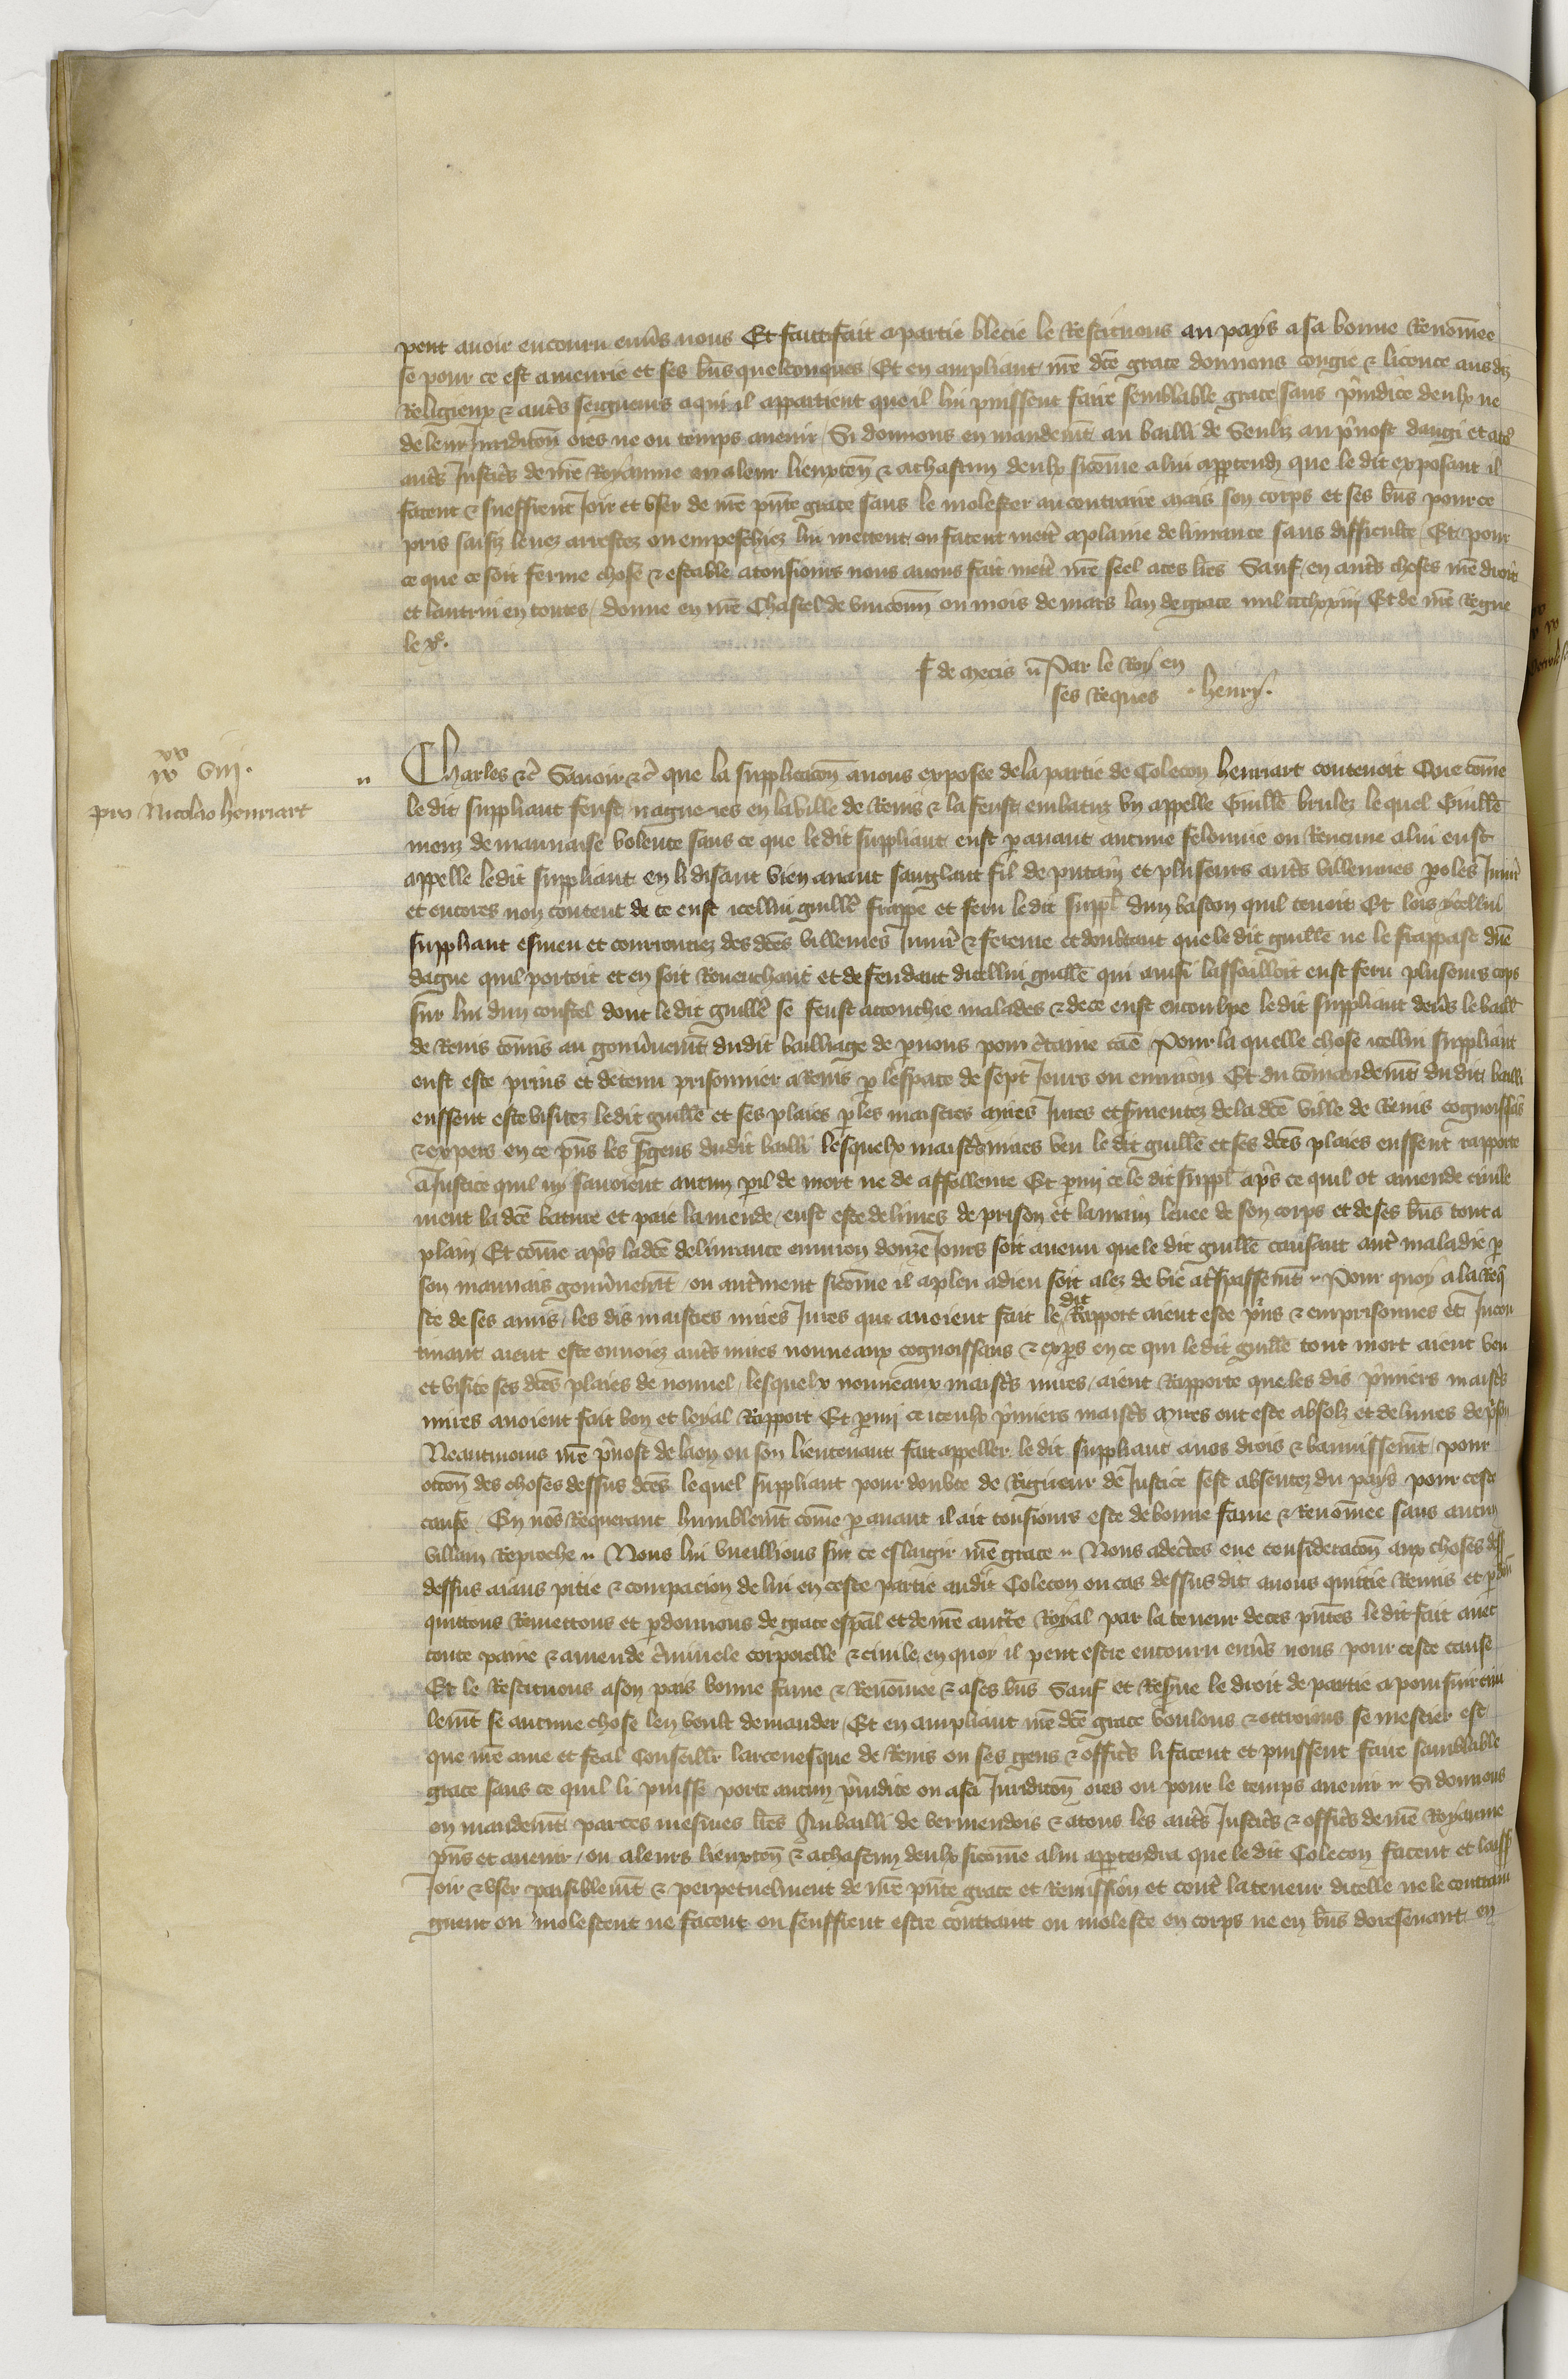 peut avoir encouru env̄s nous Et satisfait a partie blecie le Restituons au pays a sa bonne Renōmee
se pour ce est amenrie et ses bn̄s quelconques / Et en ampliant nr̄e dcē grace donnons congie & licence ausdz
Religieux & aut̄s seigneurs a qui il appartient que il lui puissent faire semblable grace sans p̄iudice deulx ne
de leur Juridicōn ores ne ou temps avenir / Si donnons en mandem̄t au bailli de Senliz au p̄vost dangi et a toꝰ
aut̄s Justic̄s de nr̄e Royaume ou a leur lieuxten̄ & a chascun deulx sicōme a lui apptendr̄ que le dit exposant il
facent & sueffrent Joir et user de nr̄e pn̄te grace sans le molester au contraire mais son corps et ses bn̄s pour ce
pris saisiz levez arrestez ou empeschiez lui mettent ou facent mett̄ a plaine delivrance sans difficulte / Et pour
ce que ce soit ferme chose & estable a tousiours nous avons fait mett̄ nr̄e seel a ces lr̄es Sauf en aut̄s choses nr̄e droit
et lautrui en toutes / donne en nr̄e Chastel de vincenn̄ ou mois de mars lan de grace mil ccclxxiij Et de nr̄e Regne
le xᵉ.
J de Mecis n̄ Par le Roy en
ses Reques · henry ·
xx
iv viij.
pro Nicolao henriart
Charles &c̄ Savoir &c̄ que la supplicacōn a nous exposee de la partie de Colecon henriart contenoit Que cōme
le dit suppliant feust nagueres en la ville de Reins & la feust embatuz un appelle Guill̄e brulez le quel Guill̄e
meuz de mauvaise volente sans ce que le dit suppliant eust p avant aucune felonnie ou Rencune a lui eust
appelle le dit suppliant en li disant vien avant sanglant fil de putain et pluseurs aut̄s villennies poles Jniur̄
et encores non content de ce eust icellui guill̄e frappe et feru le dit suppl̄ dun baston quil tenoit Et lors ycellui
suppliant esmeu et courrouciez des dcēs villenies Jniur̄ & ferene et doubtant que le dit guill̄e ne le frappast dune
dague quil portoit et en soit Revenchant et defendant dicellui guill̄e qui ainsi lassailloit eust feru plusours cops
sur lui dun coustel dont le dit guill̄e se feust accouchie malades & de ce eust encoulpe le dit suppliant dev̄s le baill̄
de Reins cōmis au gouv̄nem̄t dudit bailliage de p nous pour c̄taine cāe Pour la quelle chose icellui suppliant
eust este prins et detenu prisonnier a Reins p lespace de sept Jours ou environ Et du cōmandem̄t dudit bailli
eussent este visitez le dit guill̄e et ses plaies p les maistres mires Jures et sermentez de la dcē ville de Reins cognoissās
& expers en ce pn̄s les s̄gens dudit bailli lesquelx maist̄s mires veu le dit guill̄e et ses dcēs plaies eussent rapporte
a Justice quil ny savoient aucun p̄il de mort ne de affollenie Et p my ce le dit suppl̄ ap̄s ce quil ot amende civile
ment la dcē bateure et paie lamende / eust este delivres de prison et la main levee de son corps et de ses bn̄s tout a
plain Et cōme ap̄s la dcē delivrance environ douze Jours soit avenu que le dit guill̄e causant aut̄ maladie p
son mauvais gouv̄nem̄t / ou aut̄ment sicōme il a pleu a dieu soit alez de vie a t̄spassem̄t Pour quoy a la Req̄
ste de ses amis / les dis maistres mires Jures qui avoient fait le dit Rapport aient este p̄ns & emprisonnes et Jncon
tinant aient este envoiez aut̄s mires nouveaux cognoissans & exp̄s en ce qui le dit guill̄e tout mort aient veu
et visite ses dcēs plaies de nouvel / lesquelx nouveaux maist̄s mires / aient Rapporte que les dis p̄miers maist̄s
mires avoient fait bon et loyal Rapport Et p my ce iceulx p̄miers maist̄s mires ont este absolz et delivres de p̄son
Neantmoins nr̄e p̄vost de laon ou son lieutenant fait appeller le dit suppliant a nos drois & bannissem̄t / pour
occōn des choses dessus dcēs lequel suppliant pour doubte de Rigueur de Justice sest absentez du pays pour ceste
cause En noꝰ Requerant humblem̄t cōme p avant il ait tousiours este de bonne fame & Renōmee sans aucun
villain Reproche Nous lui vueillions sur ce eslargir nr̄e grace Nous adec̄tes eue consideracōn aux choses dess
dessus aians pitie & compacion de lui en ceste partie audit Colecon ou cas dessus dit avons quittie Remis et pdon̄
quittons Remettons et pdonnons de grace esp̄al et de nr̄e auct̄te Royal par la teneur de ces pn̄tes le dit fait avec
toute paine & amende c̄iminele corporelle & civile en quoy il peut estre encouru env̄s nous pour ceste cause
Et le Restituons a son pais bonne fame & Renōmee & a ses bn̄s Sauf et Res̄ve le droit de partie a poursuir civi
lem̄t se aucune chose len veult demander / Et en ampliant nr̄e dcē grace voulons & ottroions se mestier est
que nr̄e ame et feal Conseillr̄ larcevesque de Reins ou ses gens & offic̄s li facent et puissent faire samblable
grace sans ce quil li puisse porte aucun p̄iudice ou a sa Juridicōn ores ou pour le temps avenir Si donnons
en mandem̄t par ces mesmes lr̄es Au bailli de vermendois & a tous les aut̄s Justic̄s & offic̄s de nr̄e Royaume
pn̄s et avenir / ou a leurs lieuxten̄ & a chascun deulx sicōme a lui apptendra que le dit Colecon facent et laiss
Joir & user paisiblem̄t & perpetuelment de nr̄e pn̄te grace et Remission et cont̄ la teneur dicelle ne le contrain
gnent ou molestent ne facent ou seuffrent estre contraint ou moleste en corps ne en bn̄s doresenavant en